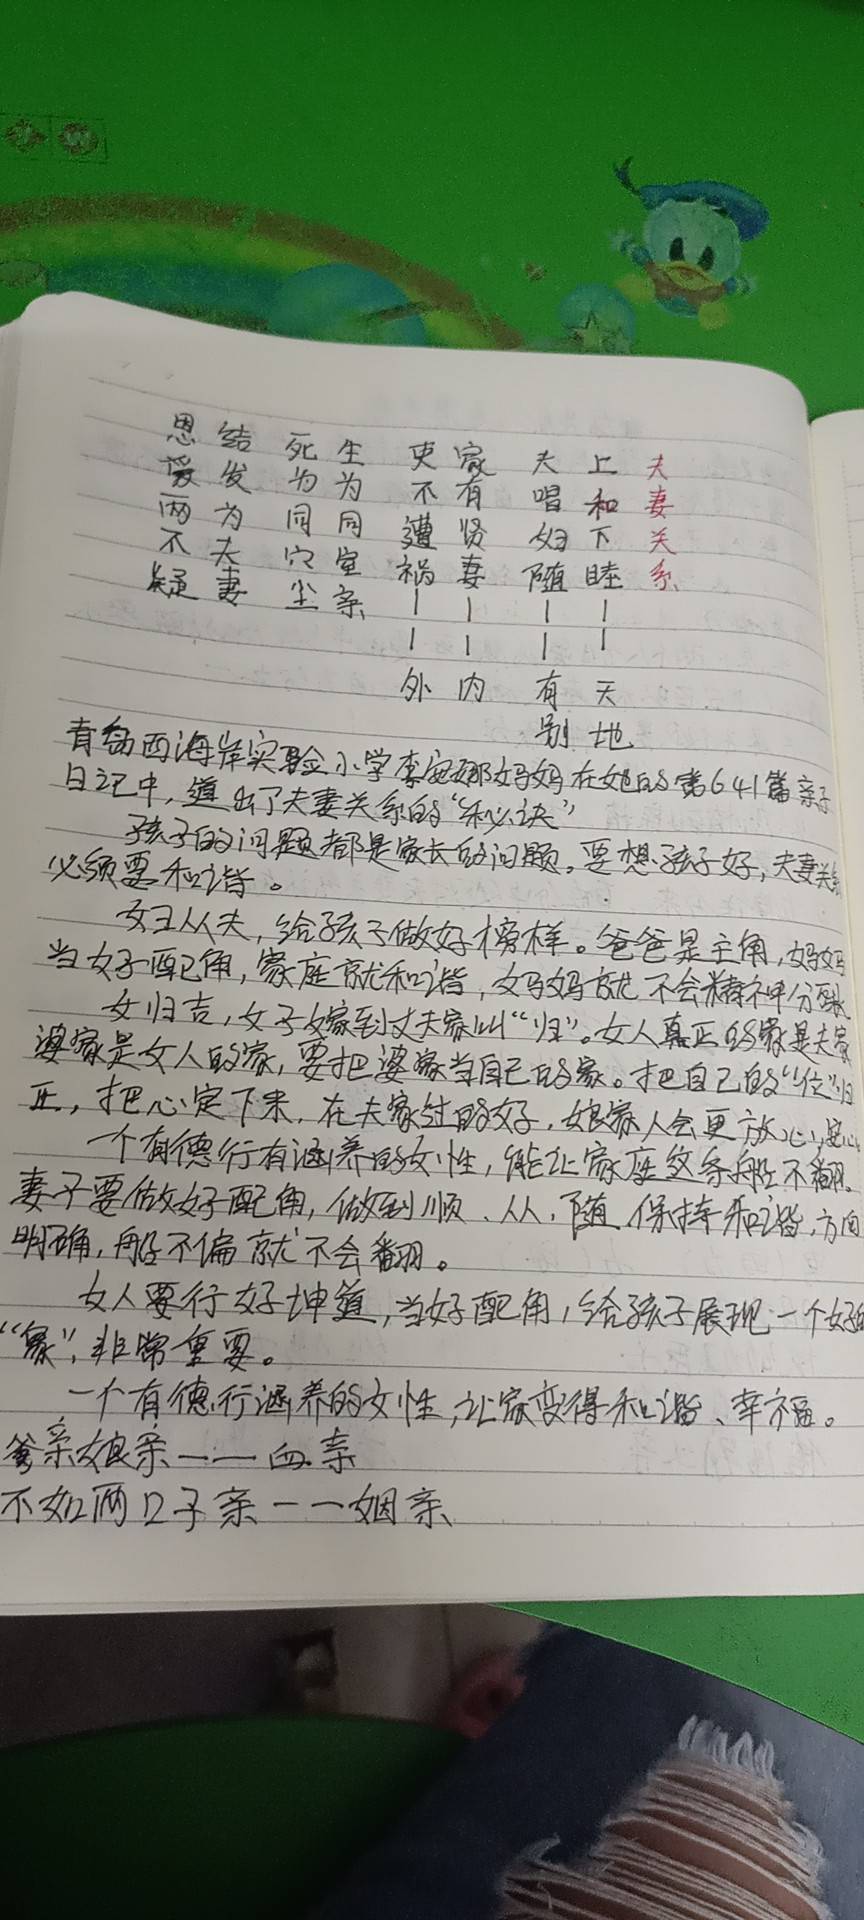 夫妻关系
上和下睦——天地
夫唱妇随——有别
家有贤妻——内
更不遭祸——外
生为同室亲
死为同穴尘
结发为夫妻
恩爱两不疑
青岛西海岸实验小学李安娜妈妈在她的第641篇亲子
日记中，道出了夫妻关系的“秘诀”
孩子的问题都是家长的问题。要想孩子好，夫妻关系
必须要和谐。
女曰从夫，给孩子做好榜样。爸爸是主角，妈妈
当好配角，家庭就和谐，妈妈就不会精神分裂
女归吉，女子嫁到丈夫家叫“归”。女人真正的家是夫家
婆家是女人的家，要把婆家当自己的家。把自己的“位”归
正，把心定下来，在夫家过的好，娘家人会更放心，安心
一个有德行有涵养的女性，能让家庭这条船不翻。
妻子要做好配角，做到顺、从、随保持和谐，方向
明确，船不偏就不会翻。
女人要行好坤道，当好配角，给孩子展现一个好的
“家”，非常重要。
一个有德行涵养的女性，让家变得和谐、幸福。
爹亲娘亲——血亲
不如两口子亲——姻亲